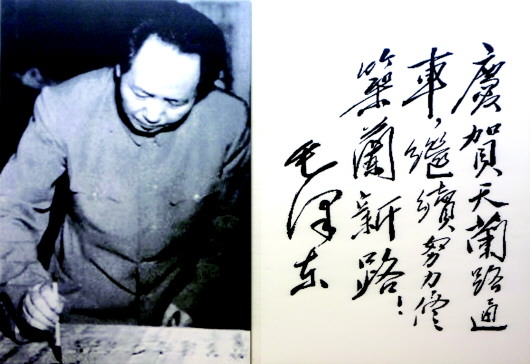 慶賀天蘭路通
車，繼續努力修
築蘭新路！
毛泽东